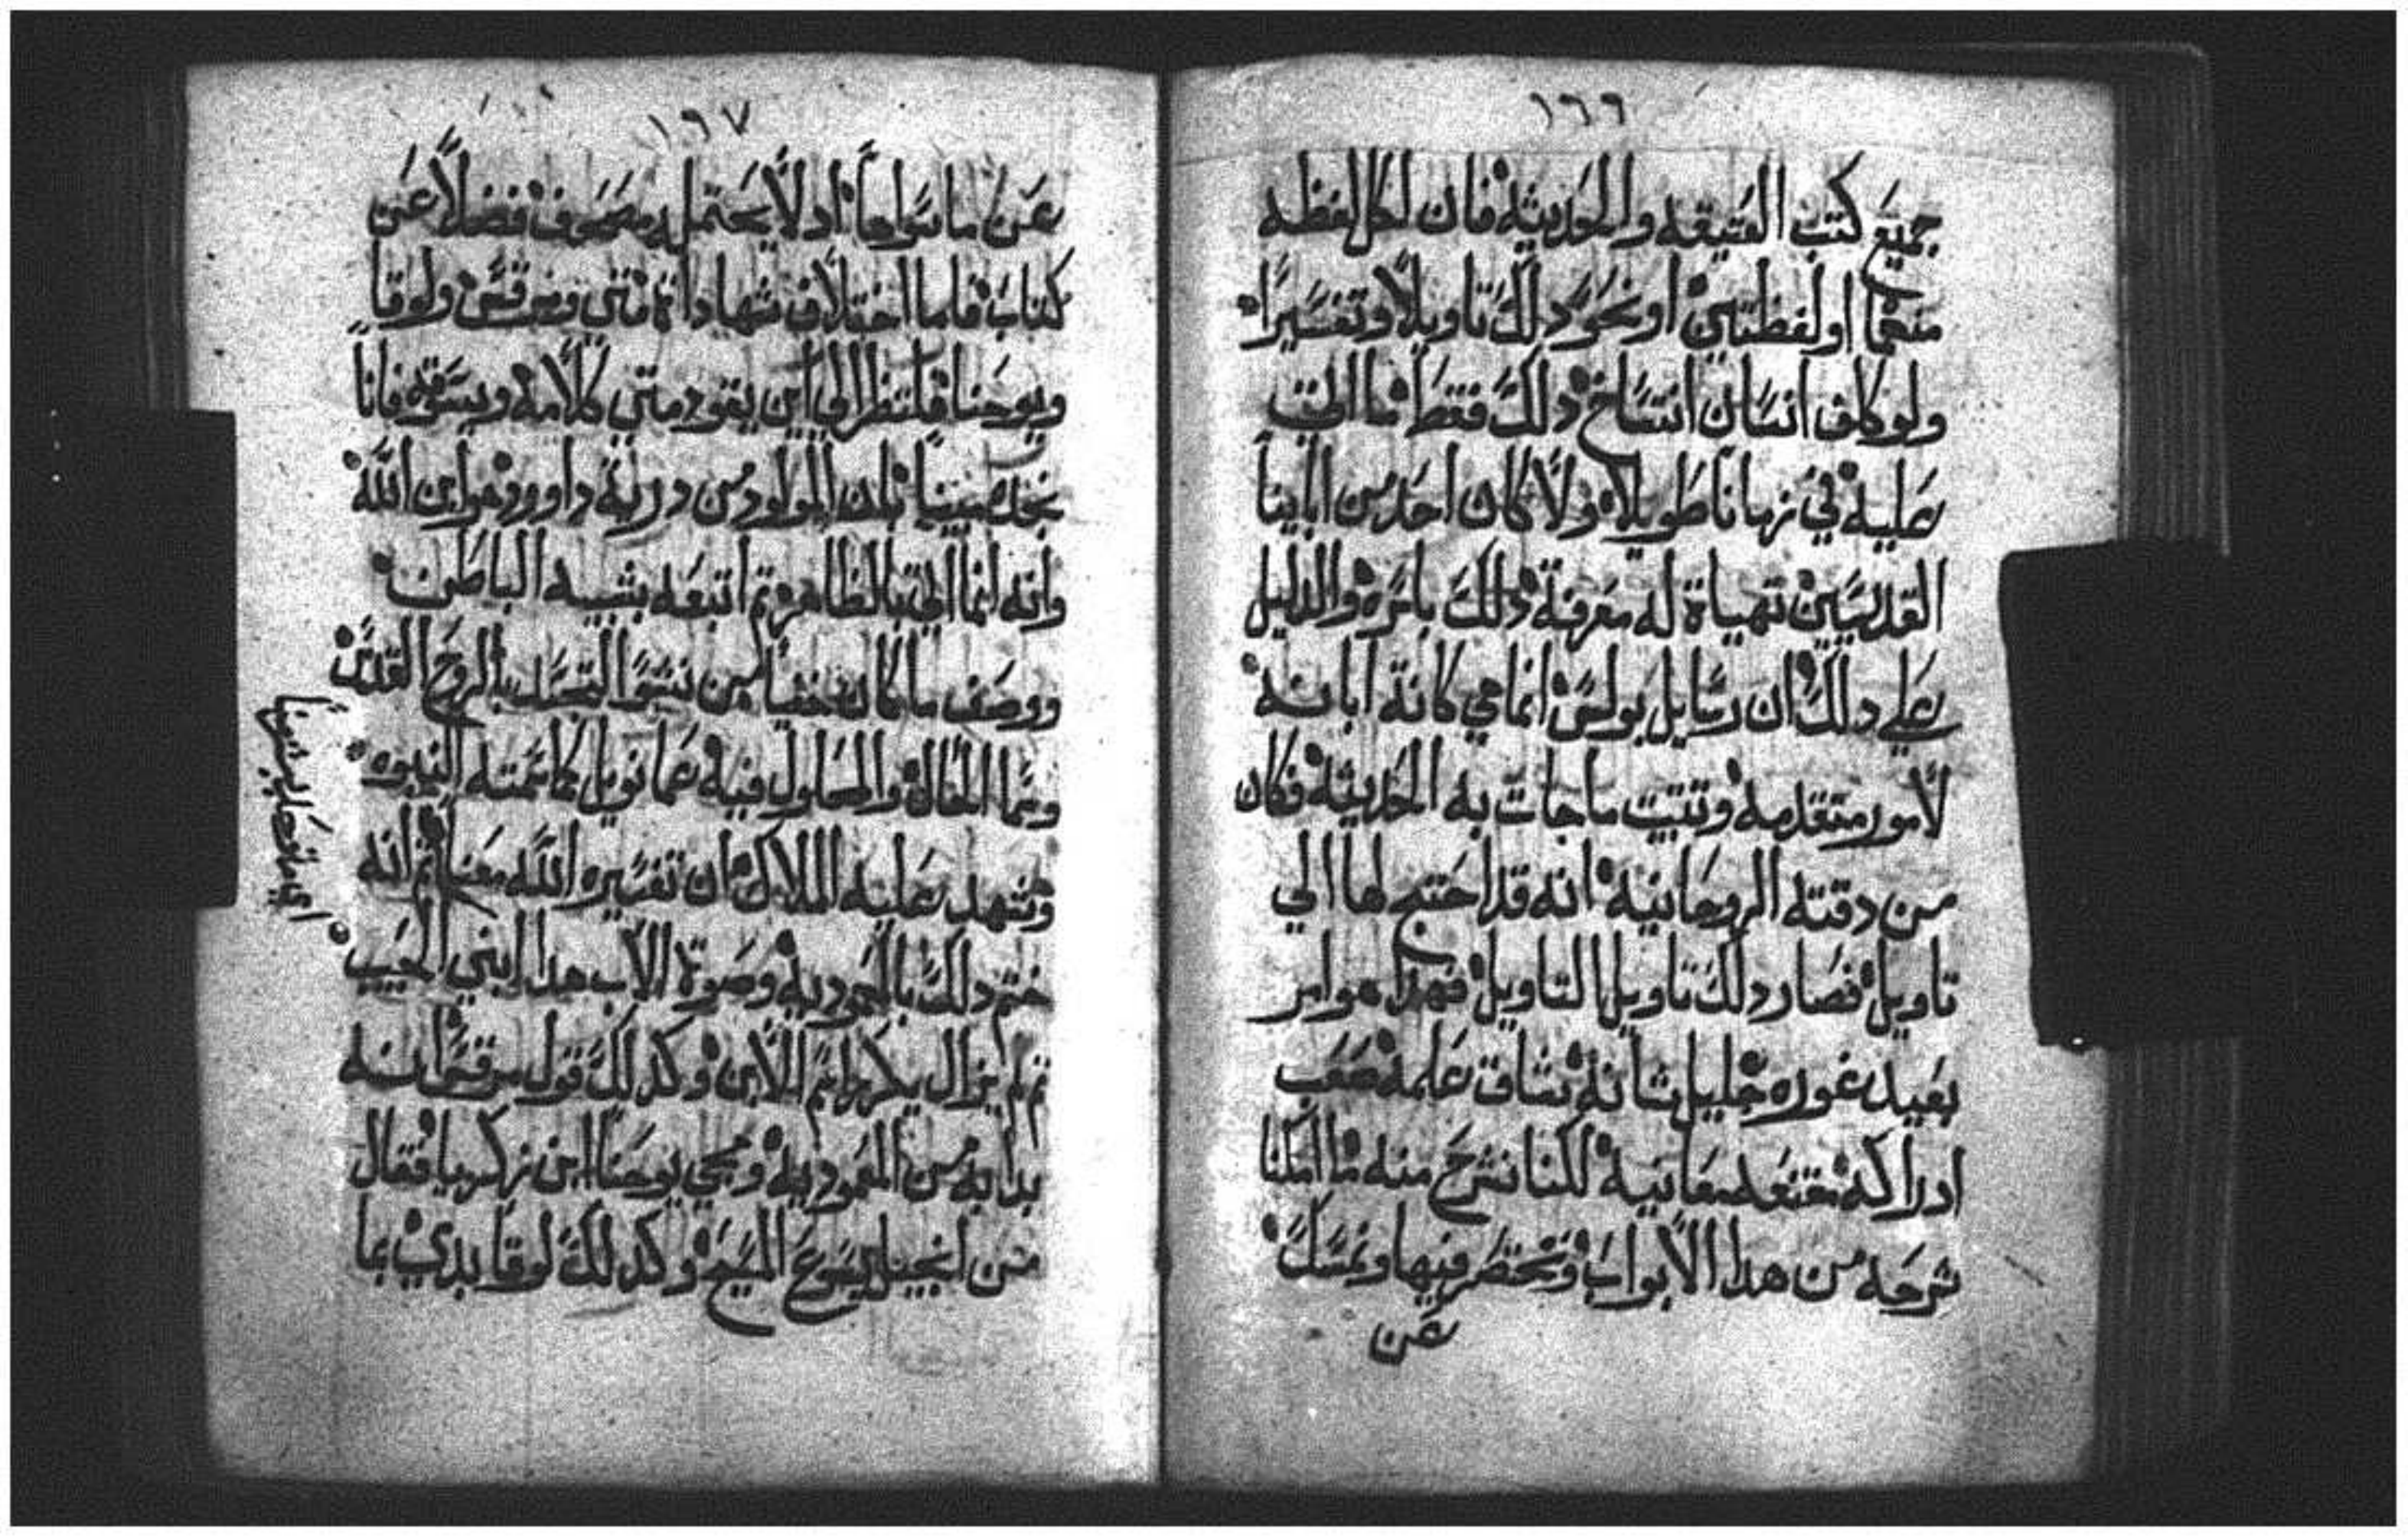 ١٦٦
جميع كتب العتيقه والحديثة فان لكل لفظه
منهما او لفظتين او نحو دلك تاويلاً وتفسيراً
ولو كلف انسان انتساخ دلك فقط ما اتى
عليه في زماناً طويلاً ولا كان احد من اباينا
القديسين تهياة له معرفة دلك باسره والدليل
علي دلك ان رسايل بولس انما هي كانة ابانه
لأمور متقدمه وتتبت ماجات به الحديثة فكان
من دقته الروحانيه انه قد احتج لها الي
تاويل فصار دلك تاويل التاويل فهدا هو امر
بعيد غوره جليل شانه شاق علمه صعب
ادراكه معانيه لكننا نشرح منه ما امكنا
شرحه من هدا الأبواب ونختصر فيها ونمسك
عن
١٦٧
عن ما سواها اد لا يحتمله مصحف فضلاً عن
كتاب فاما اختلاف شهاداة متي ومرقس ولوقا
ويوحنا فلننظر الي اين يقود متي كلامه ويسوقه فانا
نجده مبيناً بان المولود من درية داوود هو ابن الله
وانه انما اتى بالظاهر تم اتبعه بشبيه الباطن
ووصف ما كان خفياً من نبتوا التجسد بالروح القدس
وبما الحاله والمحلول فيه عمانويل كما تمته النبوه
وشهد عليه الملاك ان تفسيره الله معنا تم انه
ختم دلك بالمعمودية وصوة الأب هدا ابني الحبيب
تم لم يزال يكرر اسم الابن وكدلك قول مرقس انه
بدا به من المعمودية ومجي يوحنا ابن زكريا فقال
من انجيل يسوع المسيح وكدلك لوقا بدي بما